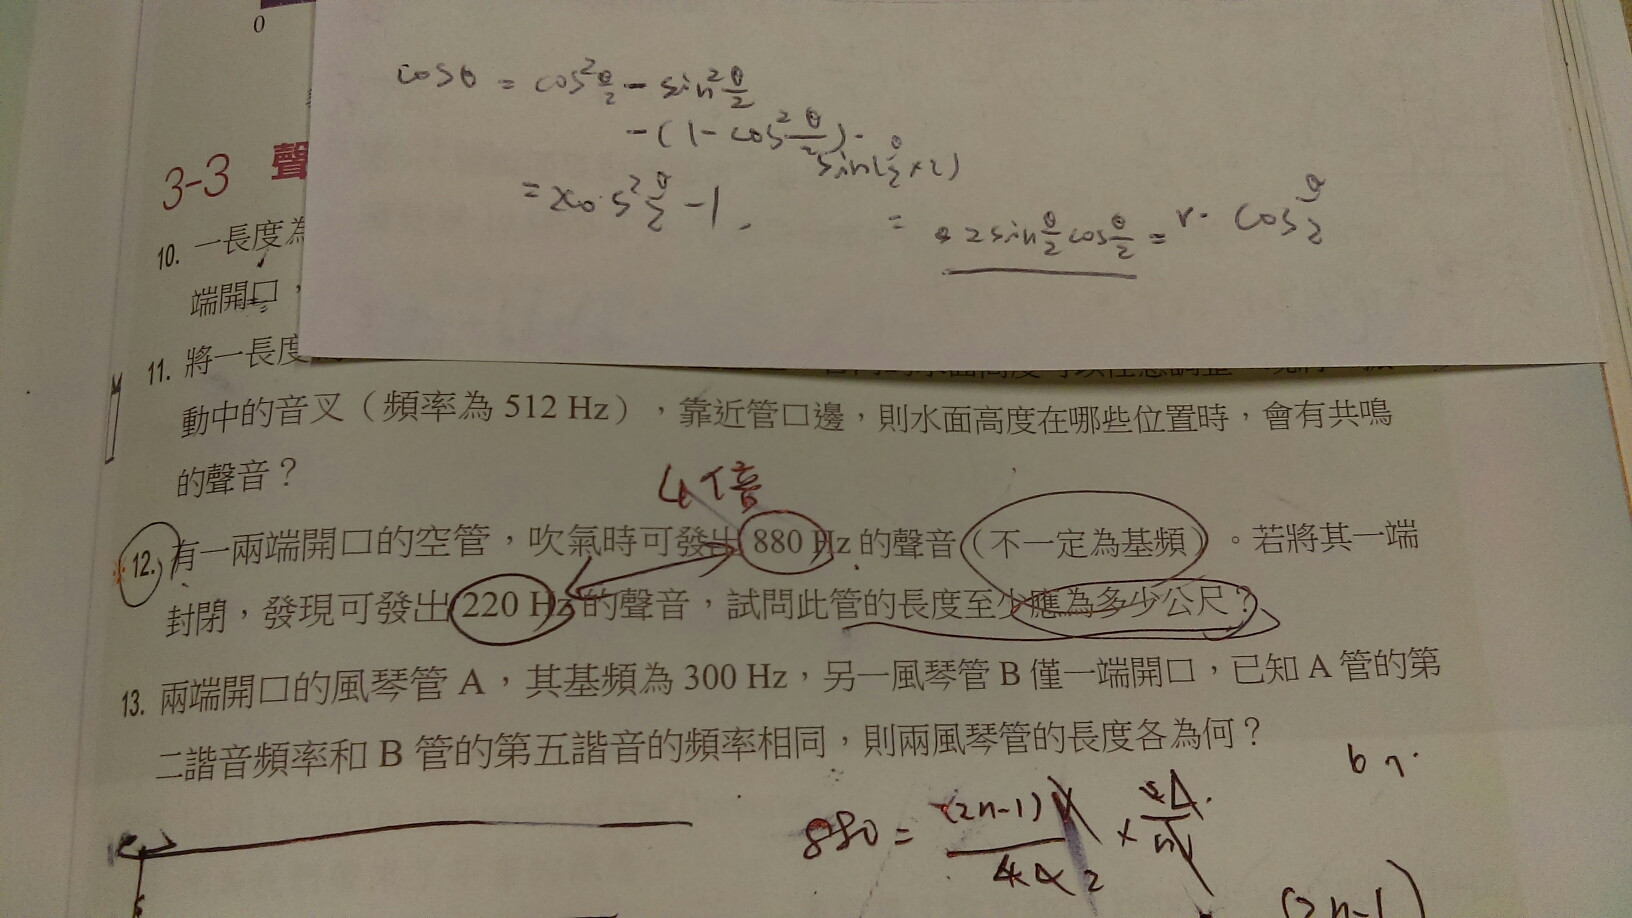 0
cosθ = cos²θ/2 - sin²θ/2
-(1-cos²θ/2).
sin(θ/2×2)
= 2cos²θ/2 -1.
= 2sinθ/2cosθ/2 = r. cosθ/2
3-3 聲
10. 一長度為
端開口，
11. 將一長度
動中的音叉（頻率為 512 Hz），靠近管口邊，則水面高度在哪些位置時，會有共鳴
的聲音？
4倍
12. 有一兩端開口的空管，吹氣時可發出 880 Hz 的聲音（不一定為基頻）。若將其一端
封閉，發現可發出 220 Hz 的聲音，試問此管的長度至少應為多少公尺？
13. 兩端開口的風琴管 A，其基頻為 300 Hz，另一風琴管 B 僅一端開口，已知 A 管的第
二諧音頻率和 B 管的第五諧音的頻率相同，則兩風琴管的長度各為何？
880 = (2n-1)
(2n-1)